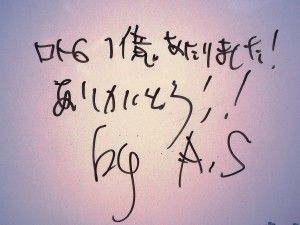 ロト6 1億、あたりました!
ありがとう!!
by A.S